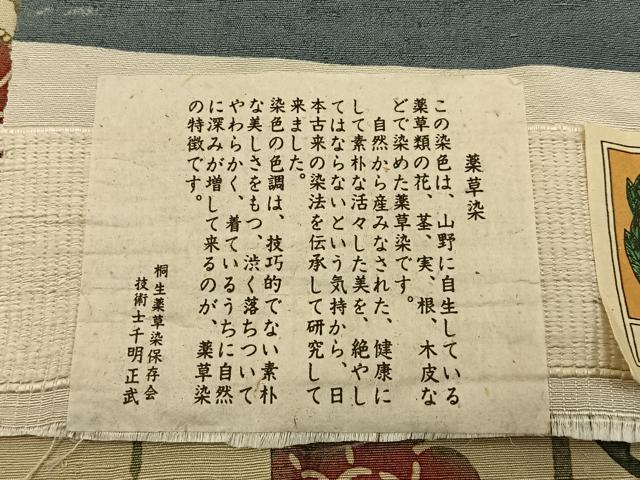 薬草染
この染色は、山野に自生している
薬草類の花、茎、実、根、木皮な
どで染めた薬草染です。
自然から産みなされた、健康に
して素朴な活々した美を、絶やし
てはならないという気持から、日
本古来の染法を伝承して研究して
来ました。
染色の色調は、技巧的でない素朴
な美しさをもつ、渋く落ちついて
やわらかく、着ているうちに自然
に深みが増して来るのが、薬草染
の特徴です。
桐生薬草染保存会
技術士千明正武